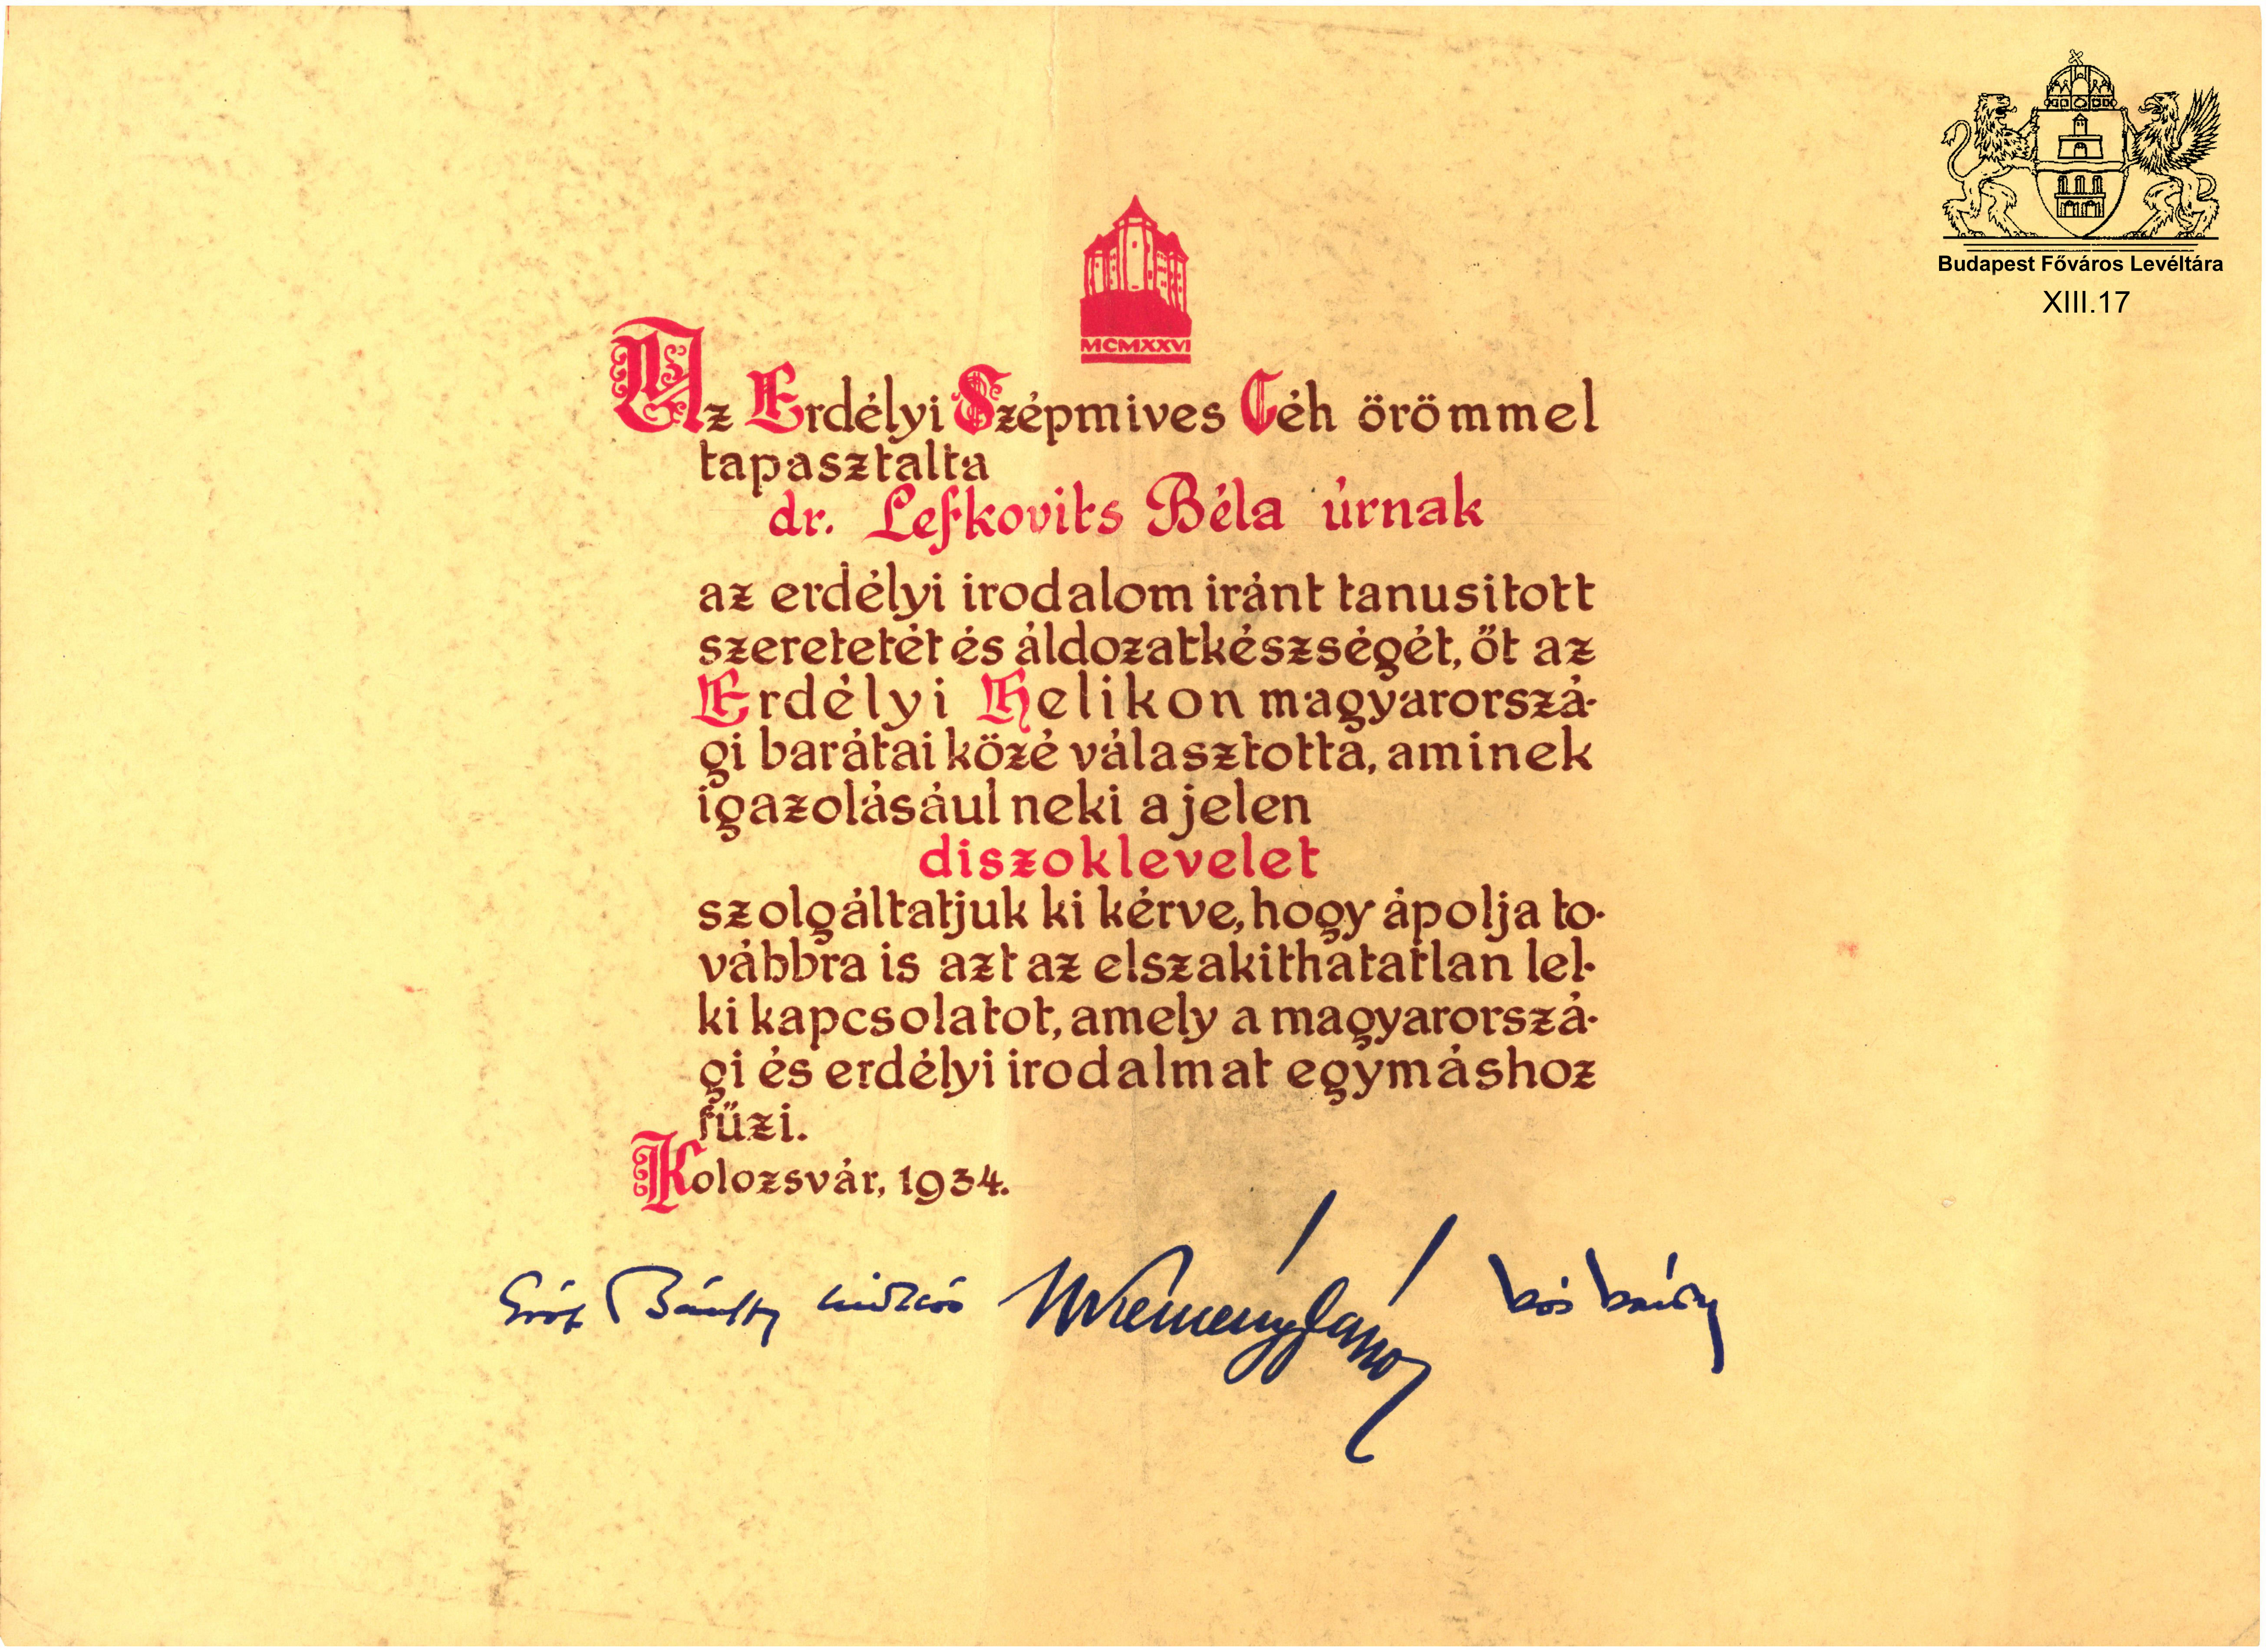 Budapest Főváros Levéltára
XIII.17
MCMXXVI
Az Erdélyi Szépmives Céh örömmel
tapasztalta
dr. Lefkovits Béla úrnak
az erdélyi irodalom iránt tanusitott
szeretetét és áldozatkészségét, őt az
Erdélyi Helikon magyarorszá-
gi barátai közé választotta, aminek
igazolásául neki a jelen
diszoklevelet
szolgáltatjuk ki kérve, hogy ápolja to-
vábbra is azt az elszakithatatlan lel-
ki kapcsolatot, amely a magyarorszá-
gi és erdélyi irodalmat egymáshoz
fűzi.
Kolozsvár, 1934.
Gróf Bánffy Miklós Kemény János Kós Károly